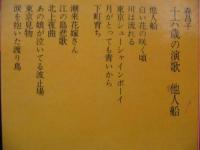 森昌子
十六歳の演歌 他人船
他人船
白い花の咲く頃
川は流れる
東京シューシャインボーイ
月がとっても青いから
下町育ち
潮来花嫁さん
江の島悲歌
北上夜曲
あの娘が泣いてる波止場
東京見物
涙を抱いた渡り鳥